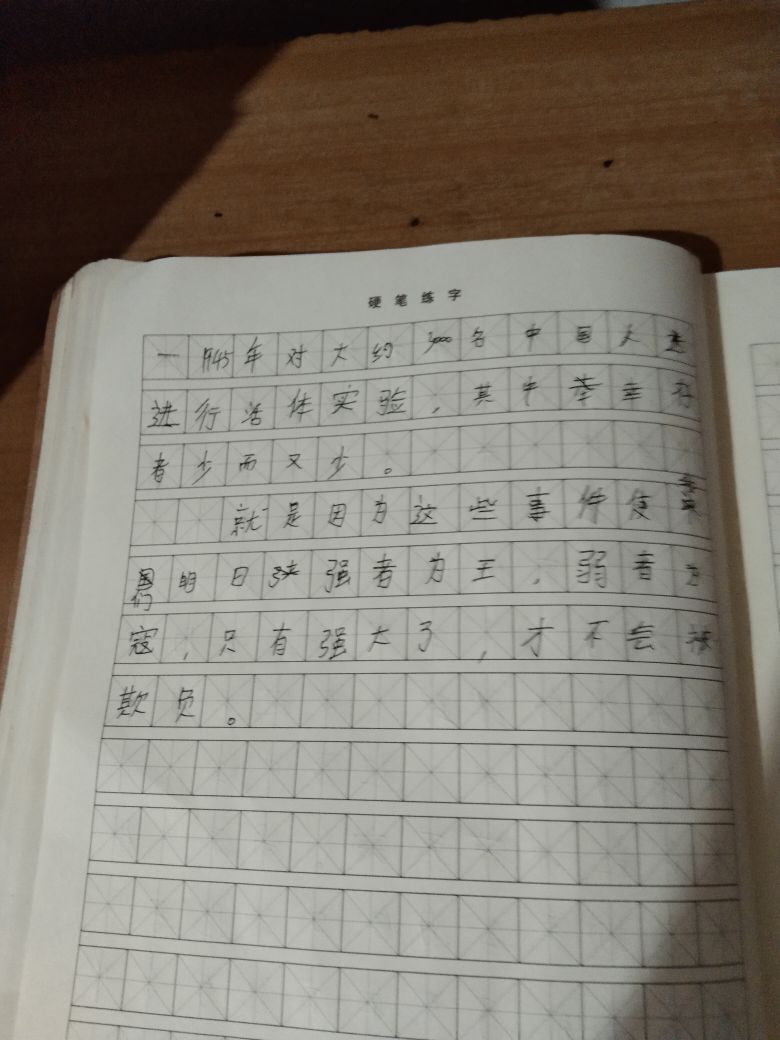 硬笔练字
一1945年对大约3000名中国人
进行活体实验，其中幸存
者少而又少。
就是因为这些事件使
我们明白强者为王，弱者为
寇，只有强大了，才不会被
欺负。